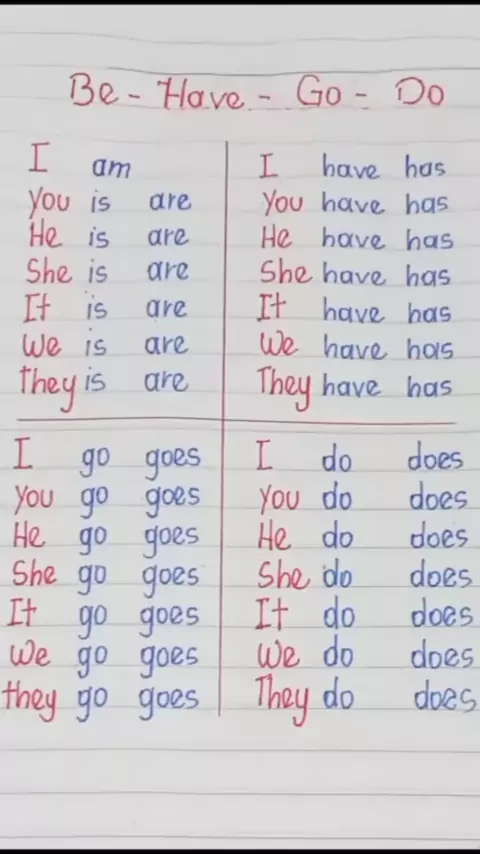 Be - Have - Go - Do
I am
You is are
He is are
She is are
It is are
We is are
They is are
I have has
You have has
He have has
She have has
It have has
We have has
They have has
I go goes
You go goes
He go goes
She go goes
It go goes
We go goes
they go goes
I do does
You do does
He do does
She do does
It do does
We do does
They do does